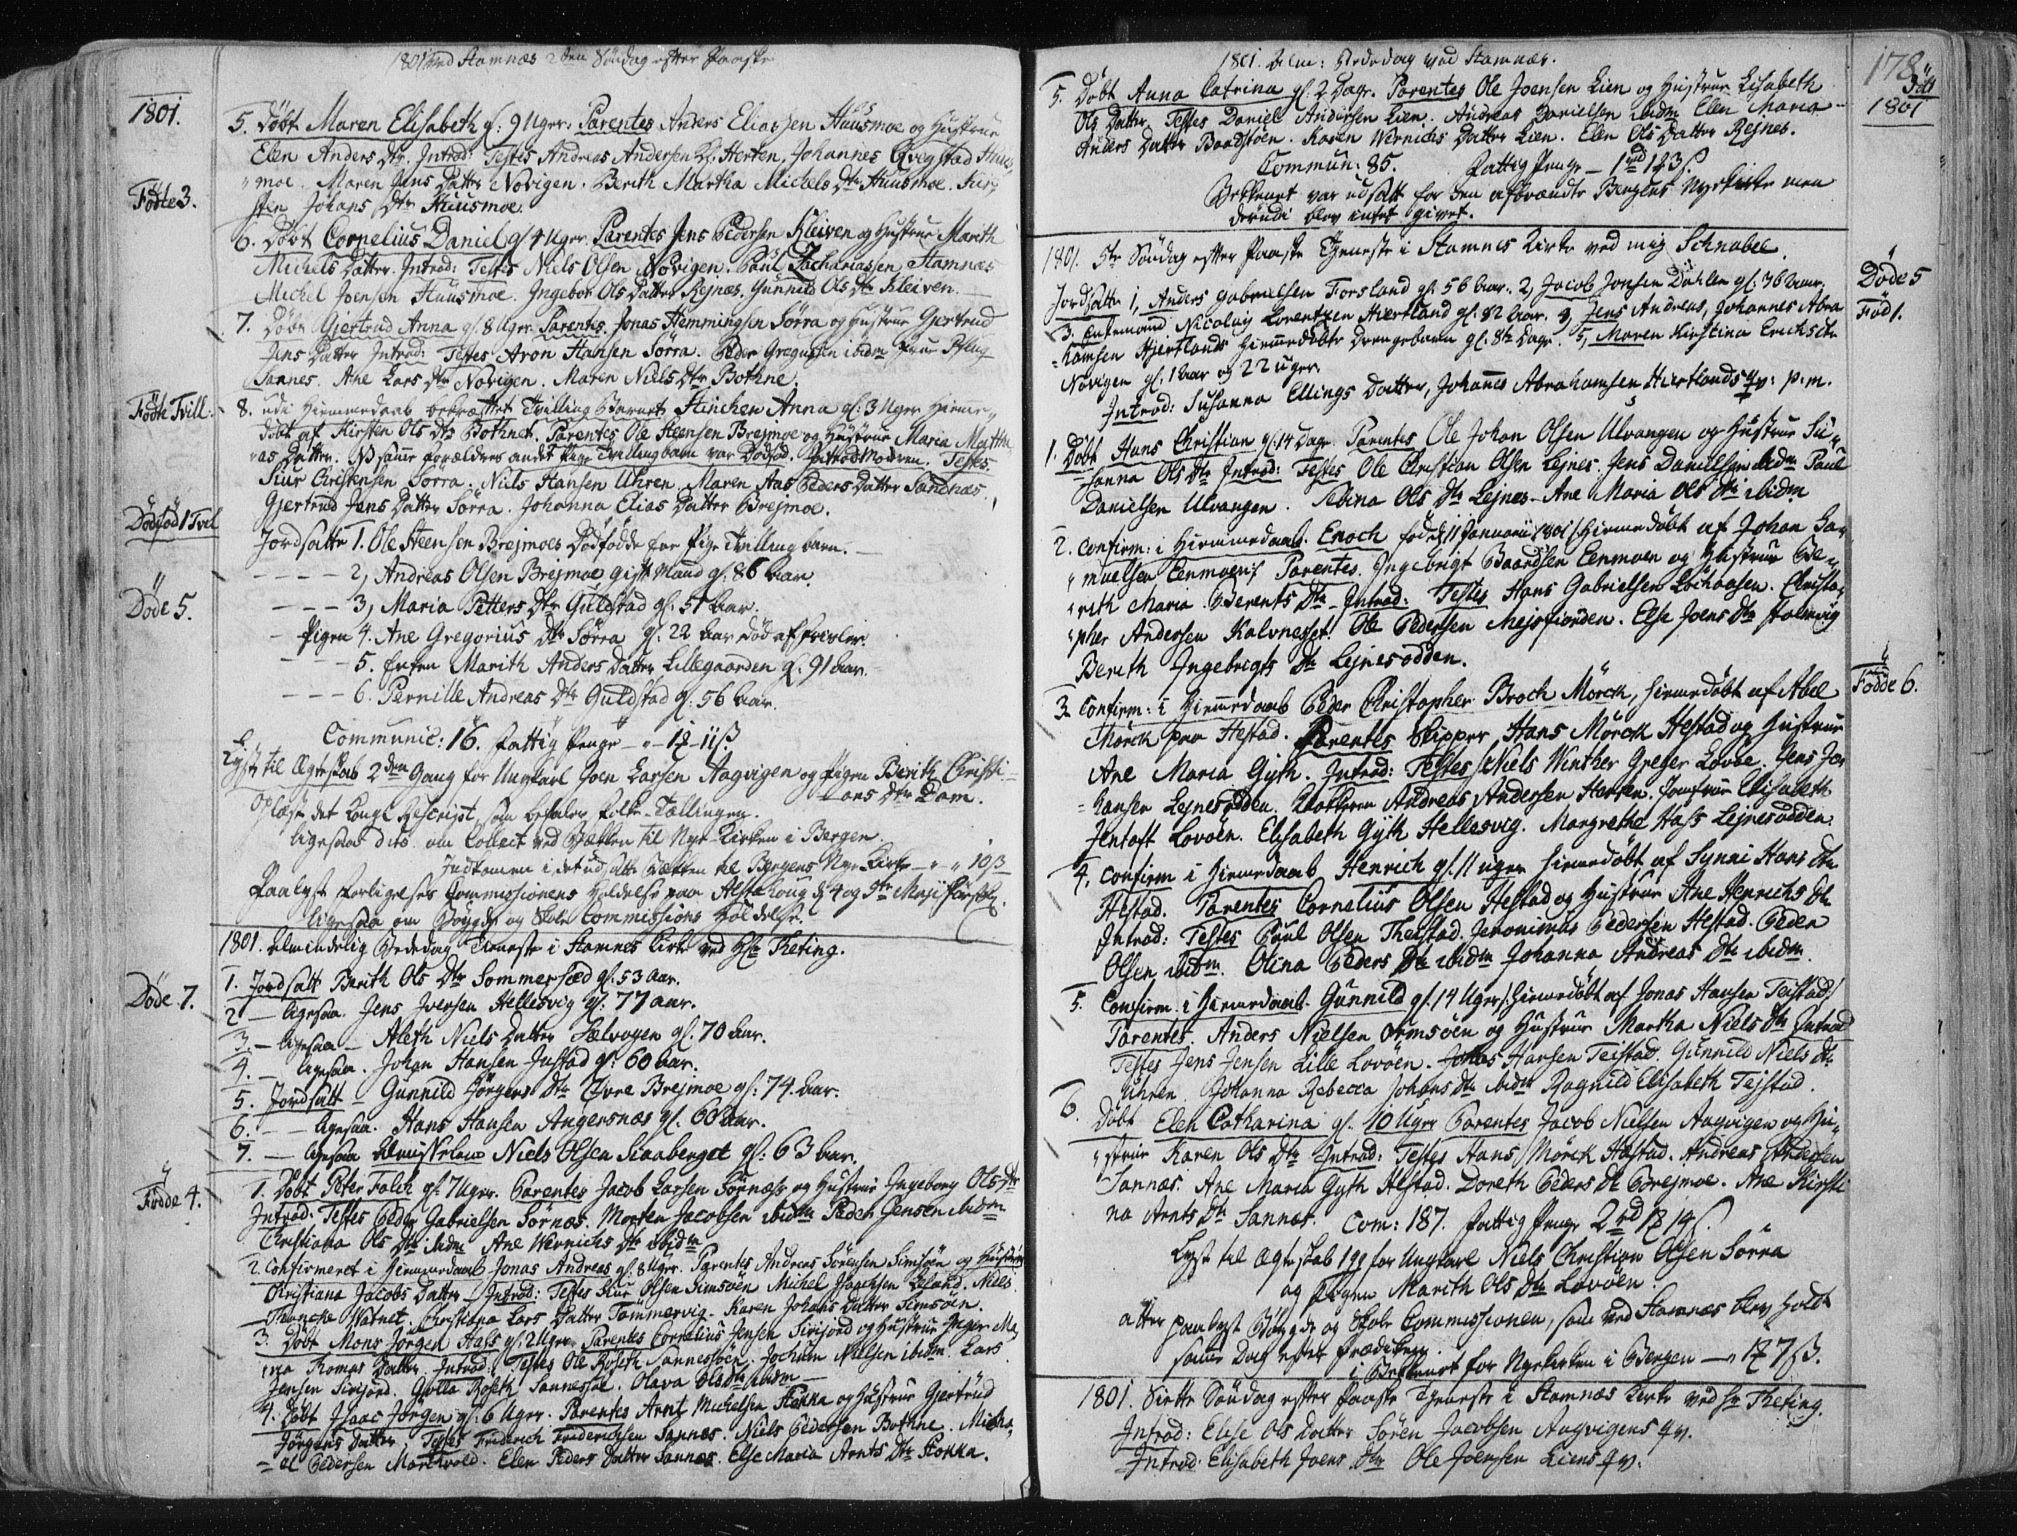 1801 ved Stamnæs 2den Söndag efter Paaske
1801.
5. Döbt Maren Elisabeth gl: 9 Uger. Parentes Anders Eliassen Huusmoe og Hustrue
Elen Anders Dtr. Introd: Testes Andreas Andersen Herten, Johannes Qvigstad Huus
moe. Maren Jens Datter Novigen. Berith Martha Michels Dtr Huusmoe. Kir
sten Johans Dtr Huusmoe.
Födte 3.
6. Döbt Cornelius Daniel gl 4 Uger. Parentes Jens Pedersen Kleiven og Hustrue Marith
Michels Datter. Introd: Testes Niels Olsen Novigen. Paul Zachariassen Stamnæs
Michel Joensen Huusmoe. Ingebor Ols Datter Rejnes. Gunnild Ols Dtr Kleiven.
7. Döbt Gjertrud Anna gl 8 Uger. Parentes. Jonas Hemmingsen Sörra og Hustrue Gjertrud
Jens Datter Introd: Testes Aron Hansen Sörra. Peder Gregusen ibidm
Sannes. Ane Lars Dtr Novigen. Maren Niels Dtr Bothne.
Födte Tvill:
8. udi Hiemmedaab bekræftet Tvilling Barnet Hinchen Anna gl: 3 Uger Hieme
döbt af Kirsten Ols Dtr Bothnet. Parentes Ole Steensen Brejmoe og Hustrue Maria Mathi
as Datter. NB samme forældres andet Pige Tvillingbarn var Dödföd. Introd Modren. Testes
Siur Christensen Sörra. Niels Hansen Uhren. Maren Aas Peders Datter Sandnæs.
Gjertrud Jens Datter Sörra. Johanna Elias Datter Brejmoe.
Dödföd 1 Tvil
Jordsatte 1. Ole Steensen Brejmoes Dödfödde Pige Tvilling barn.
2, Andreas Olsen Brejmoe gift Mand gl: 86 Aar.
Döde 5.
3, Maria Petters Dtr Guldstad gl. 57 Aar.
Pigen 4. Ane Gregorius Dtr Sörra gl. 22 Aar död af
5. Enken Marith Anders Datter Lillegaarden gl: 91 Aar.
6. Pernille Andreas Dtr Guldstad gl: 56 Aar.
Communic: 16. Fattig Penge
Lyst til Ægteskab 2den Gang for Ungkarl Joen Larsen Aagvigen og Pigen Berith Christi
ans Dtr Dam.
Oplæst det Kongl. Rescript, som befaler Folke-Tællingen.
Ligesaa dito om Collect ved Bækken til Nye Kirken i Bergen.
Indkomen i det udsatte Bækken til Bergens Nye Kirke 10 ß
Paalyst Forligelses Commissionens Holdelse paa Alstahoug d 4 og 5te Maji förstk.
Ligesaa om Böygde og Skole Commissions Holdelse.
1801. Almindelig Bededag Tieneste i Stamnes Kirke ved Hr Theting.
1. Jordsatt Berith Ols Dtr Sommersæd gl. 53 Aar.
Döde 7.
2 — Ligesaa. Jens Iversen Hellesvig gl. 77 aar.
3. — Ligesaa — Aleth Niels Datter Sælvogen gl. 70 Aar.
4. — Ligesaa. Johan Hansen Justad gl. 60 Aar.
5. Jordsatt Gunnild Jörgens Dtr Övre Brejmoe gl: 74. Aar.
6. — Ligesaa. Hans Hansen Angersnæs gl. 60 Aar.
7. — Ligesaa Niels Olsen Siaaberget gl: 63 Aar.
Födde 4.
1. Döbt Peter Falch gl. 7 Uger. Parentes Jacob Larsen Sörnæss og Hustrue Ingeborg Ols Dtr
Introd: Testes Peder Gabrielsen Sörnæs. Morten Jacobsen ibidm Peder Jensen ibidm
Christiana Ols Dtr ibidm Ane Wernichs Dtr ibidm
2. Confirmeret i Hiemmedaab Jonas Andreas gl. 8 Uger. Parentes Andreas Sörensen Simsöen og Hustrue
Christiana Jacobs Datter — Introd: Testes Siur Olsen Simsöen Michel Isachsen Niels
Thomesen Watnet. Christiana Lars Datter Tömmervig. Karen Johans Datter Simsöen.
3. Döbt Mons Jörgen Hass gl. 2 Uger. Parentes Cornelius Jensen Sivijord og Hustrue Inger Ma
ria Thomas Datter. Introd. Testes Ole Roseth Sannessöen. Jochum Nielsen ibidm. Lars
Jensen Sivijord. Roseth Sannessöe. Olava Olsdtr ibidm
4. Döbt Isaac Jörgen gl. 6 Uger. Parentes Arent Michelsen Stokka og Hustrue Gjertrud
Jörgens Datter. Testes Friderich Friderichsen Sannes. Niels Pedersen Bothne. Micha
el Pedersen Marchvold. Elen Peders Datter Sannes. Else Maria Arnts Dtr Stokka.
1801. Alm: Bededag ved Stamnæs.
178
Födt
1801
5. Döbt Anna Catrina gl. 2 Dage. Parentes Ole Joensen Lien og Hustrue Lisabeth
Ols Datter. Testes Daniel Andersen Lien. Andreas Danielsen ibidm Elen Maria
Anders Datter Baadstöen. Karen Wernichs Datter Lien. Elen Ols Datter Rejnes.
Commun: 85. Fattig Penge — 1rd
Bekkenet var udsatt for den afbrændte Bergens Nye Kirke men
derudi blev intet givet.
1801. 5te Söndag efter Paaske Tieneste i Stamnes Kirke ved mig Schnabel.
Döde 5
Föd 1.
Jordsatte 1, Anders Gabrielsen Forsland gl. 56 Aar. 2, Jacob Jonsen Dahlen gl. 36 Aar.
3. Enkemand Nicolaij Lorentzen Hiertland gl. 82 Aar. 4, Jens Andreas, Johannes Abra
hamsen Hjertlands hiemmedöbte Drengebarn gl. 8te Dage. 5, Maren Kirstina Erichsdtr
Novigen gl. 1 Aar og 22 uger.
Introd: Susanna Ellings Datter, Johannes Abrahamsen Hiertlands qv: p. m.
1. Döbt Hans Christian gl. 14 Dage. Parentes Ole Johan Olsen Ulvangen og Hustrue Su
sanna Ols Dtr Introd: Testes Ole Christian Olsen Lejnes. Jens Danielsen ibidm Paul
Danielsen Ulvangen. Albina Ols Dtr Lejnes. Ane Maria Ols Dtr ibidm
2. Confirm: i Hiemmedaab Enoch föd d 11 Januarii 1801 /:hiemedöbt af Johan Sa
muelsen Eenmoen:/ Parentes. Ingebrigt Baardsen Eenmoen og Hustrue Be
rith Maria Berents Dtr Introd: Testes Hans Gabrielsen Christo
pher Andersen Kalvnesset. Ole Pedersen Mejsfiorden. Else Joens Dtr
Berith Ingebrigts Dtr Lejnesodden.
Födde 6.
3. Confirm: i Hiemmedaab Peder Christopher Broch Mörck, hiemedöbt af Abel
Mörck paa Hestad. Parentes Skipper Hans Mörck Hestad og Hustrue
Ane Maria Gyth. Introd: Testes Niels Winther Greger Lovöe. Jens Jo
hansen Lejnesodden. Klokkeren Andreas Andersen Herten. Jomfrue Elisabeth
Jentoft Lovöen. Elisabeth Gyth Hellesvig. Margrethe Hass Lejnesodden.
4. Confirm i Hiemedaab Henrich gl. 11 uger hiemedöbt af Synni Hans Dtr
Hestad. Parentes Cornelius Olsen Hestad og Hustrue Ane Henrichs Dtr
Introd: Testes Poul Olsen Theistad. Jeronimus Pedersen Hestad. Peder
Olsen ibidm. Olina Peders Dtr ibidm Johanna Andreas Dtr ibidm.
5. Confirm. i Hiemedaab. Gunnild gl. 14 Uger /:hiemedöbt af Jonas Hansen Teistad:/
Parentes. Anders Nielsen Ormsöen og Hustrue Martha Niels Dtr Introd
Testes Jens Jensen Lille Lovöen. Jonas Hansen Teistad. Gunnild Niels Dtr
Uhren. Johanna Rebecca Johans Dtr ibidm Ragnild Elisabeth Tejstad.
6. Döbt Elen Catharina gl. 10 Uger Parentes Jacob Nielsen Aagvigen og Hu
strue Karen Ols Dtr Introd: Testes Hans Mörck Hestad. Andreas Andersen
Sannæs. Ane Maria Gyth Hestad. Doreth Peders Dtr Brejmoe. Ane Kirsti
na Arnts Dtr Sannæs. Com: 187. Fattig Penge 2rd
Lyst til Ægteskab 1 gg for Ungkarl Niels Christian Olsen Sörra
og Pigen Marith Ols Dtr Lovöen.
atter paalyst Böygde og Skole Commissionen, som ved Stamnæs blev holdt
samme Dag efter Prædiken.
i Bekkenet for Nyekirken i Bergen
1801. Siette Söndag efter Paaske Tieneste i Stamnæs Kirke ved Hr Theting.
Introd: Else Ols Datter Sören Jacobsen Aagvigens qv.
Introd: Elisabeth Joens Dtr Ole Joensen Liens qv.